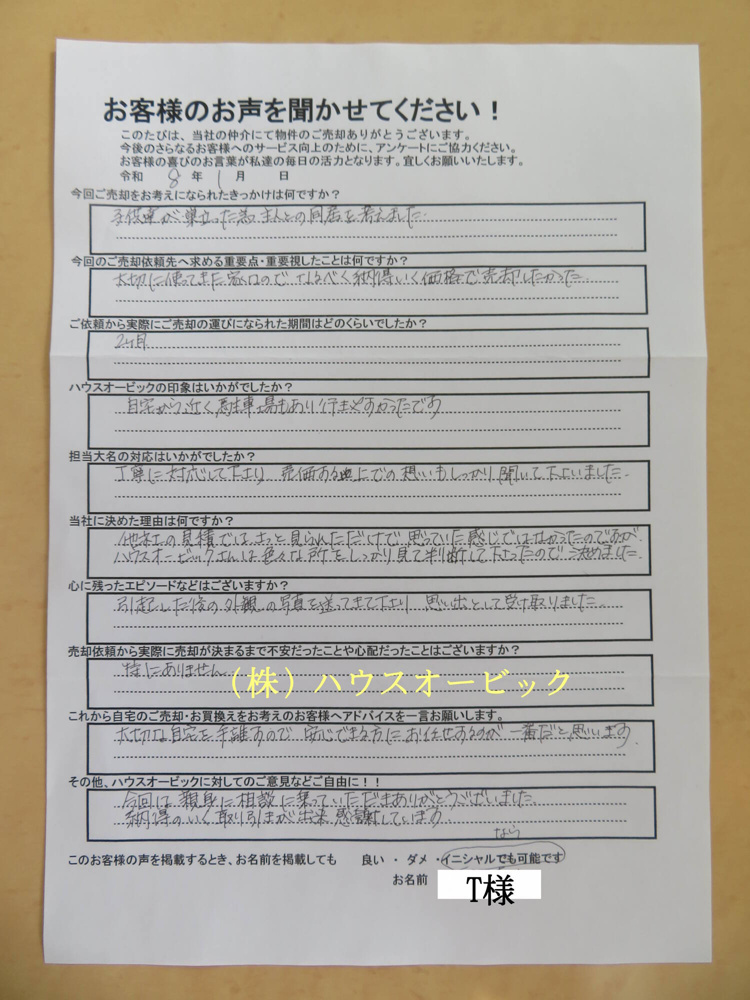 お客様のお声を聞かせてください！
このたびは、当社の仲介にて物件のご売却ありがとうございます。
今後のさらなるお客様へのサービス向上のために、アンケートにご協力ください。
お客様の喜びのお言葉が私達の毎日の活力となります。宜しくお願いいたします。
令和 8 年 1 月 日
今回ご売却をお考えになられたきっかけは何ですか？
子供達が巣立った為 主人との同居を考えました.
今回のご売却依頼先へ求める重要点・重要視したことは何ですか？
大切に使ってきた家なので なるべく納得いく価格で売却したかった.
ご依頼から実際にご売却の運びになられた期間はどのくらいでしたか？
2ヶ月
ハウスオービックの印象はいかがでしたか？
自宅から近く駐車場もあり行きやすかったです
担当大名の対応はいかがでしたか？
丁寧に対応して下さり 売価ある 上での想いもしっかり聞いて下さいました.
当社に決めた理由は何ですか？
他社の見積ではさっと見られただけで思っていた感じではなかったのですが
ハウスオービックさんは色々な所をしっかり見て判断して下さったので決めました.
心に残ったエピソードなどはございますか？
引越した後の外観の写真を送ってきて下さり 思い出として受け取りました.
売却依頼から実際に売却が決まるまで不安だったことや心配だったことはございますか？
特にありません
（株）ハウスオービック
これから自宅のご売却・お買換えをお考えのお客様へアドバイスを一言お願いします。
大切な自宅を手離すので 安心できる方にお任せするのが一番だと思います.
その他、ハウスオービックに対してのご意見などご自由に！！
今回は親身に相談に乗っていただきありがとうございました
納得のいく取り引きが出来感謝しています
なら
このお客様の声を掲載するとき、お名前を掲載しても 良い ・ ダメ ・イニシャルでも可能です
お名前 T様